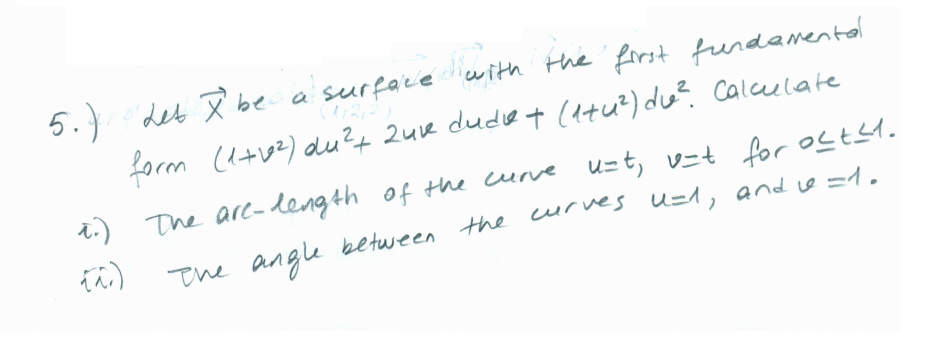 5.) Let X⃗ be a surface with the first fundamental
form (1+v²) du² + 2uv dudv + (1+u²) dv². Calculate
i.) The arc-length of the curve u=t, v=t for 0≤t≤1.
ii.) The angle between the curves u=1, and v=1.